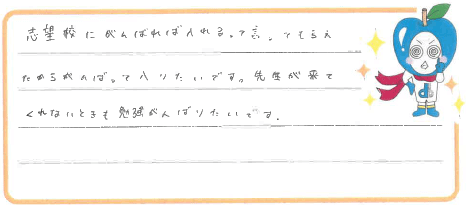 志望校にがんばれば入れるって言ってもらえ
たからがんばって入りたいです。先生が来て
くれないときも勉強がんばりたいです.